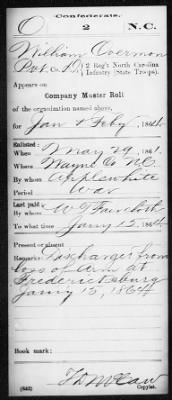 Confederate.
O 2 N.C.
William Overmon
Pvt. Co. D, 2 Reg't North Carolina
Infantry (State Troops).
Appears on
Company Muster Roll
of the organization named above,
for Jan & Feby, 1864.
Enlisted:
When May 29, 1861.
Where Wayne Co NC
By whom Applewhite
Period War
Last paid:
By whom W G
To what time Jany 15, 1864.
Present or absent
Remarks: Discharged from
loss of arm at
Fredericksburg
Jany 15, 1864
Book mark:
(642) Copyist.